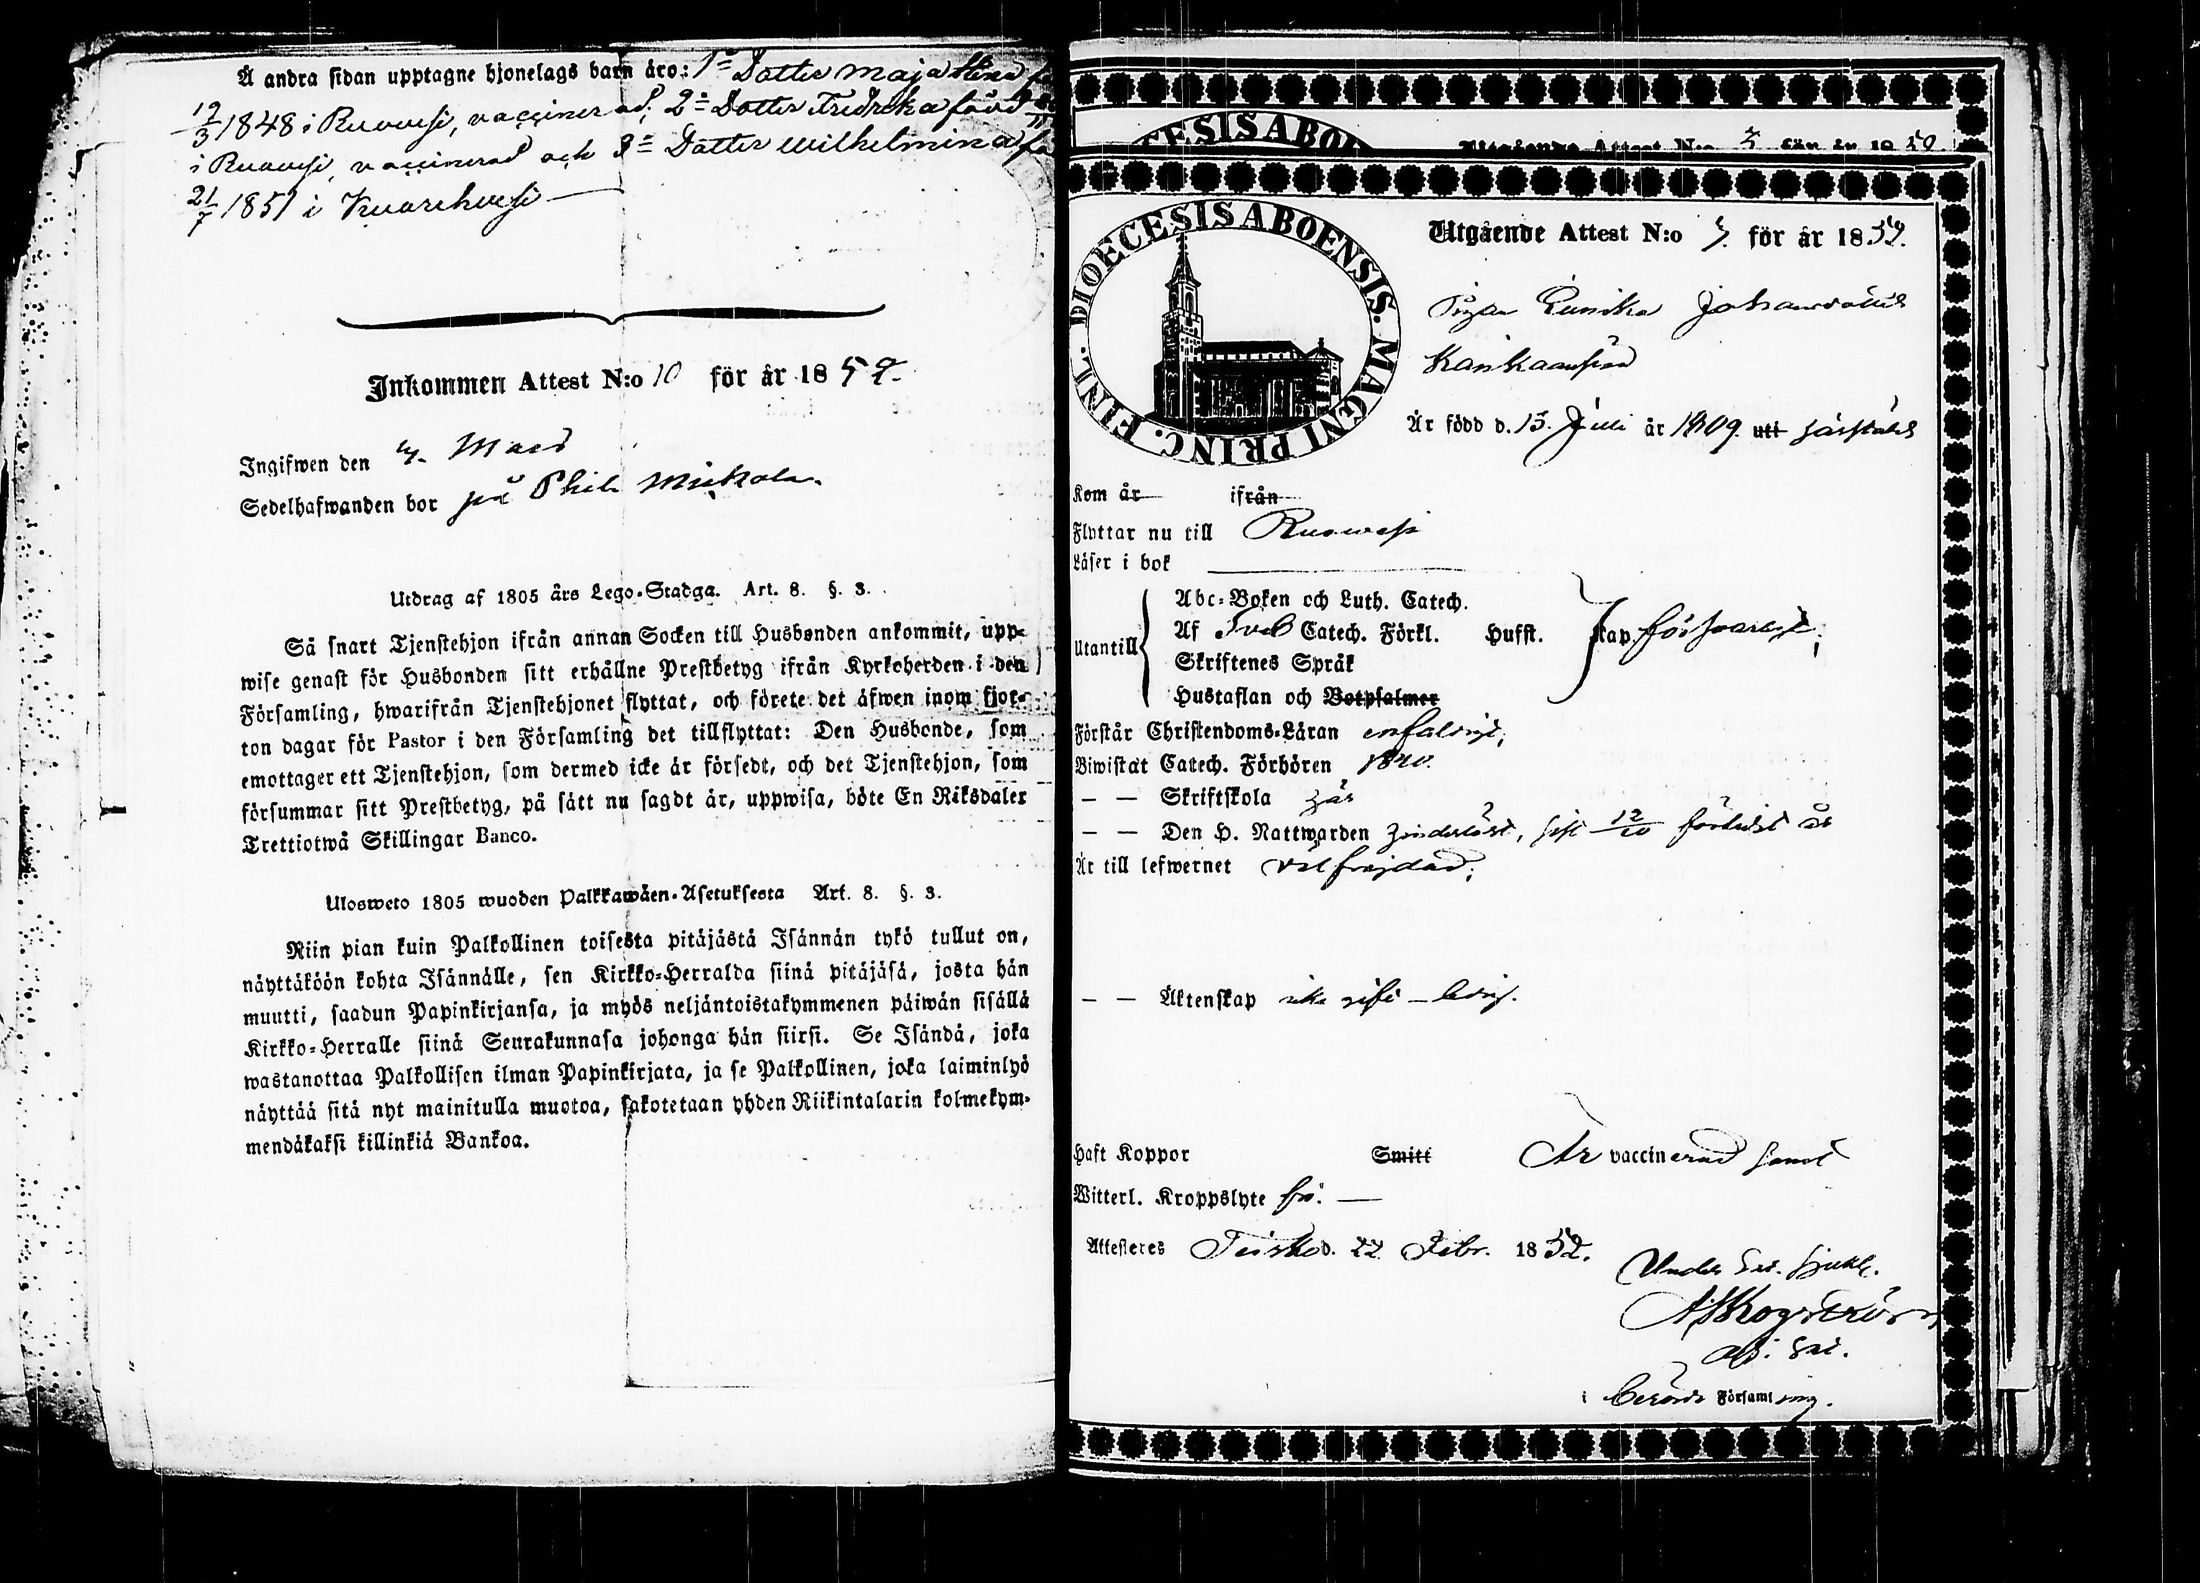 Å andra sidan upptagne hjonelags barn äro: 1º Dotter Maja Stina
12/3 1848 i Ruovesi, vaccinerad; 2º Dotter Fredrika född
i Ruovesi, vaccinerad och 3º Dotter Wilhelmina
21/7 1851 i Kuorehvesi
Inkommen Attest N:o 10 för år 1852.
Ingifwen den Mars
Sedelhafwanden bor på Mickola.
Utdrag af 1805 års Lego-Stadga. Art. 8. §. 3.
Så snart Tjenstehjon ifrån annan Socken till Husbonden ankommit, upp-
wise genast för Husbonden sitt erhållne Prestbetyg ifrån Kyrkoherden i den
Församling, hwarifrån Tjenstehjonet flyttat, och förete det äfwen inom fjor-
ton dagar för Pastor i den Församling det tillflyttat: Den Husbonde, som
emottager ett Tjenstehjon, som dermed icke är försedt, och det Tjenstehjon, som
försummar sitt Prestbetyg, på sätt nu sagdt är, uppwisa, böte En Riksdaler
Trettiotwå Skillingar Banco.
Ulosweto 1805 wuoden Palkkawäen-Asetuksesta Art. 8. §. 3.
Niin pian kuin Palkollinen toisesta pitäjästä Isännän tykö tullut on,
näyttäköön kohta Isännälle, sen Kirkko-Herralda siinä pitäjäsä, josta hän
muutti, saadun Papinkirjansa, ja myös neljäntoistakymmenen päiwän sisällä
Kirkko-Herralle siinä Seurakunnasa johonga hän siirsi. Se Isändä, joka
wastanottaa Palkollisen ilman Papinkirjata, ja se Palkollinen, joka laiminlyö
näyttää sitä nyt mainitulla muotoa, sakotetaan yhden Riikintalarin kolmekym-
mendäkaksi killinkiä Bankoa.
Utgående Attest N:o 3 för år 1852.
FINL. DIOECESIS ABOENSIS. MAGNI PRINC.
Utgående Attest N:o för år 1852.
Pigan Johansdotter
Är född d. 15 Juli år 1809. utt härstädes
Kom år ifrån
Flyttar nu till Ruowesi
Läser i bok
Utantill
Abc-Boken och Luth. Catech.
Af Sveb Catech. Förkl. Hufst. kap. försvarligt;
Skriftenes Språk
Hustaflan och Botpsalmer
Förstår Christendoms-Läran enfaldigt;
Biwistat Catech. Förhören 18
— — Skriftskola här
— — Den H. Nattwarden sist 12/10 förledet år
Är till lefwernet välfrejdad;
— — Äktenskap icke gift — ledig.
Haft Koppor Smitt Är vaccinerad
Witterl. Kroppslyte fri. —
Attesteres Teisko d. 22 Febr. 1852.
A Skogström
i berörde Församling.